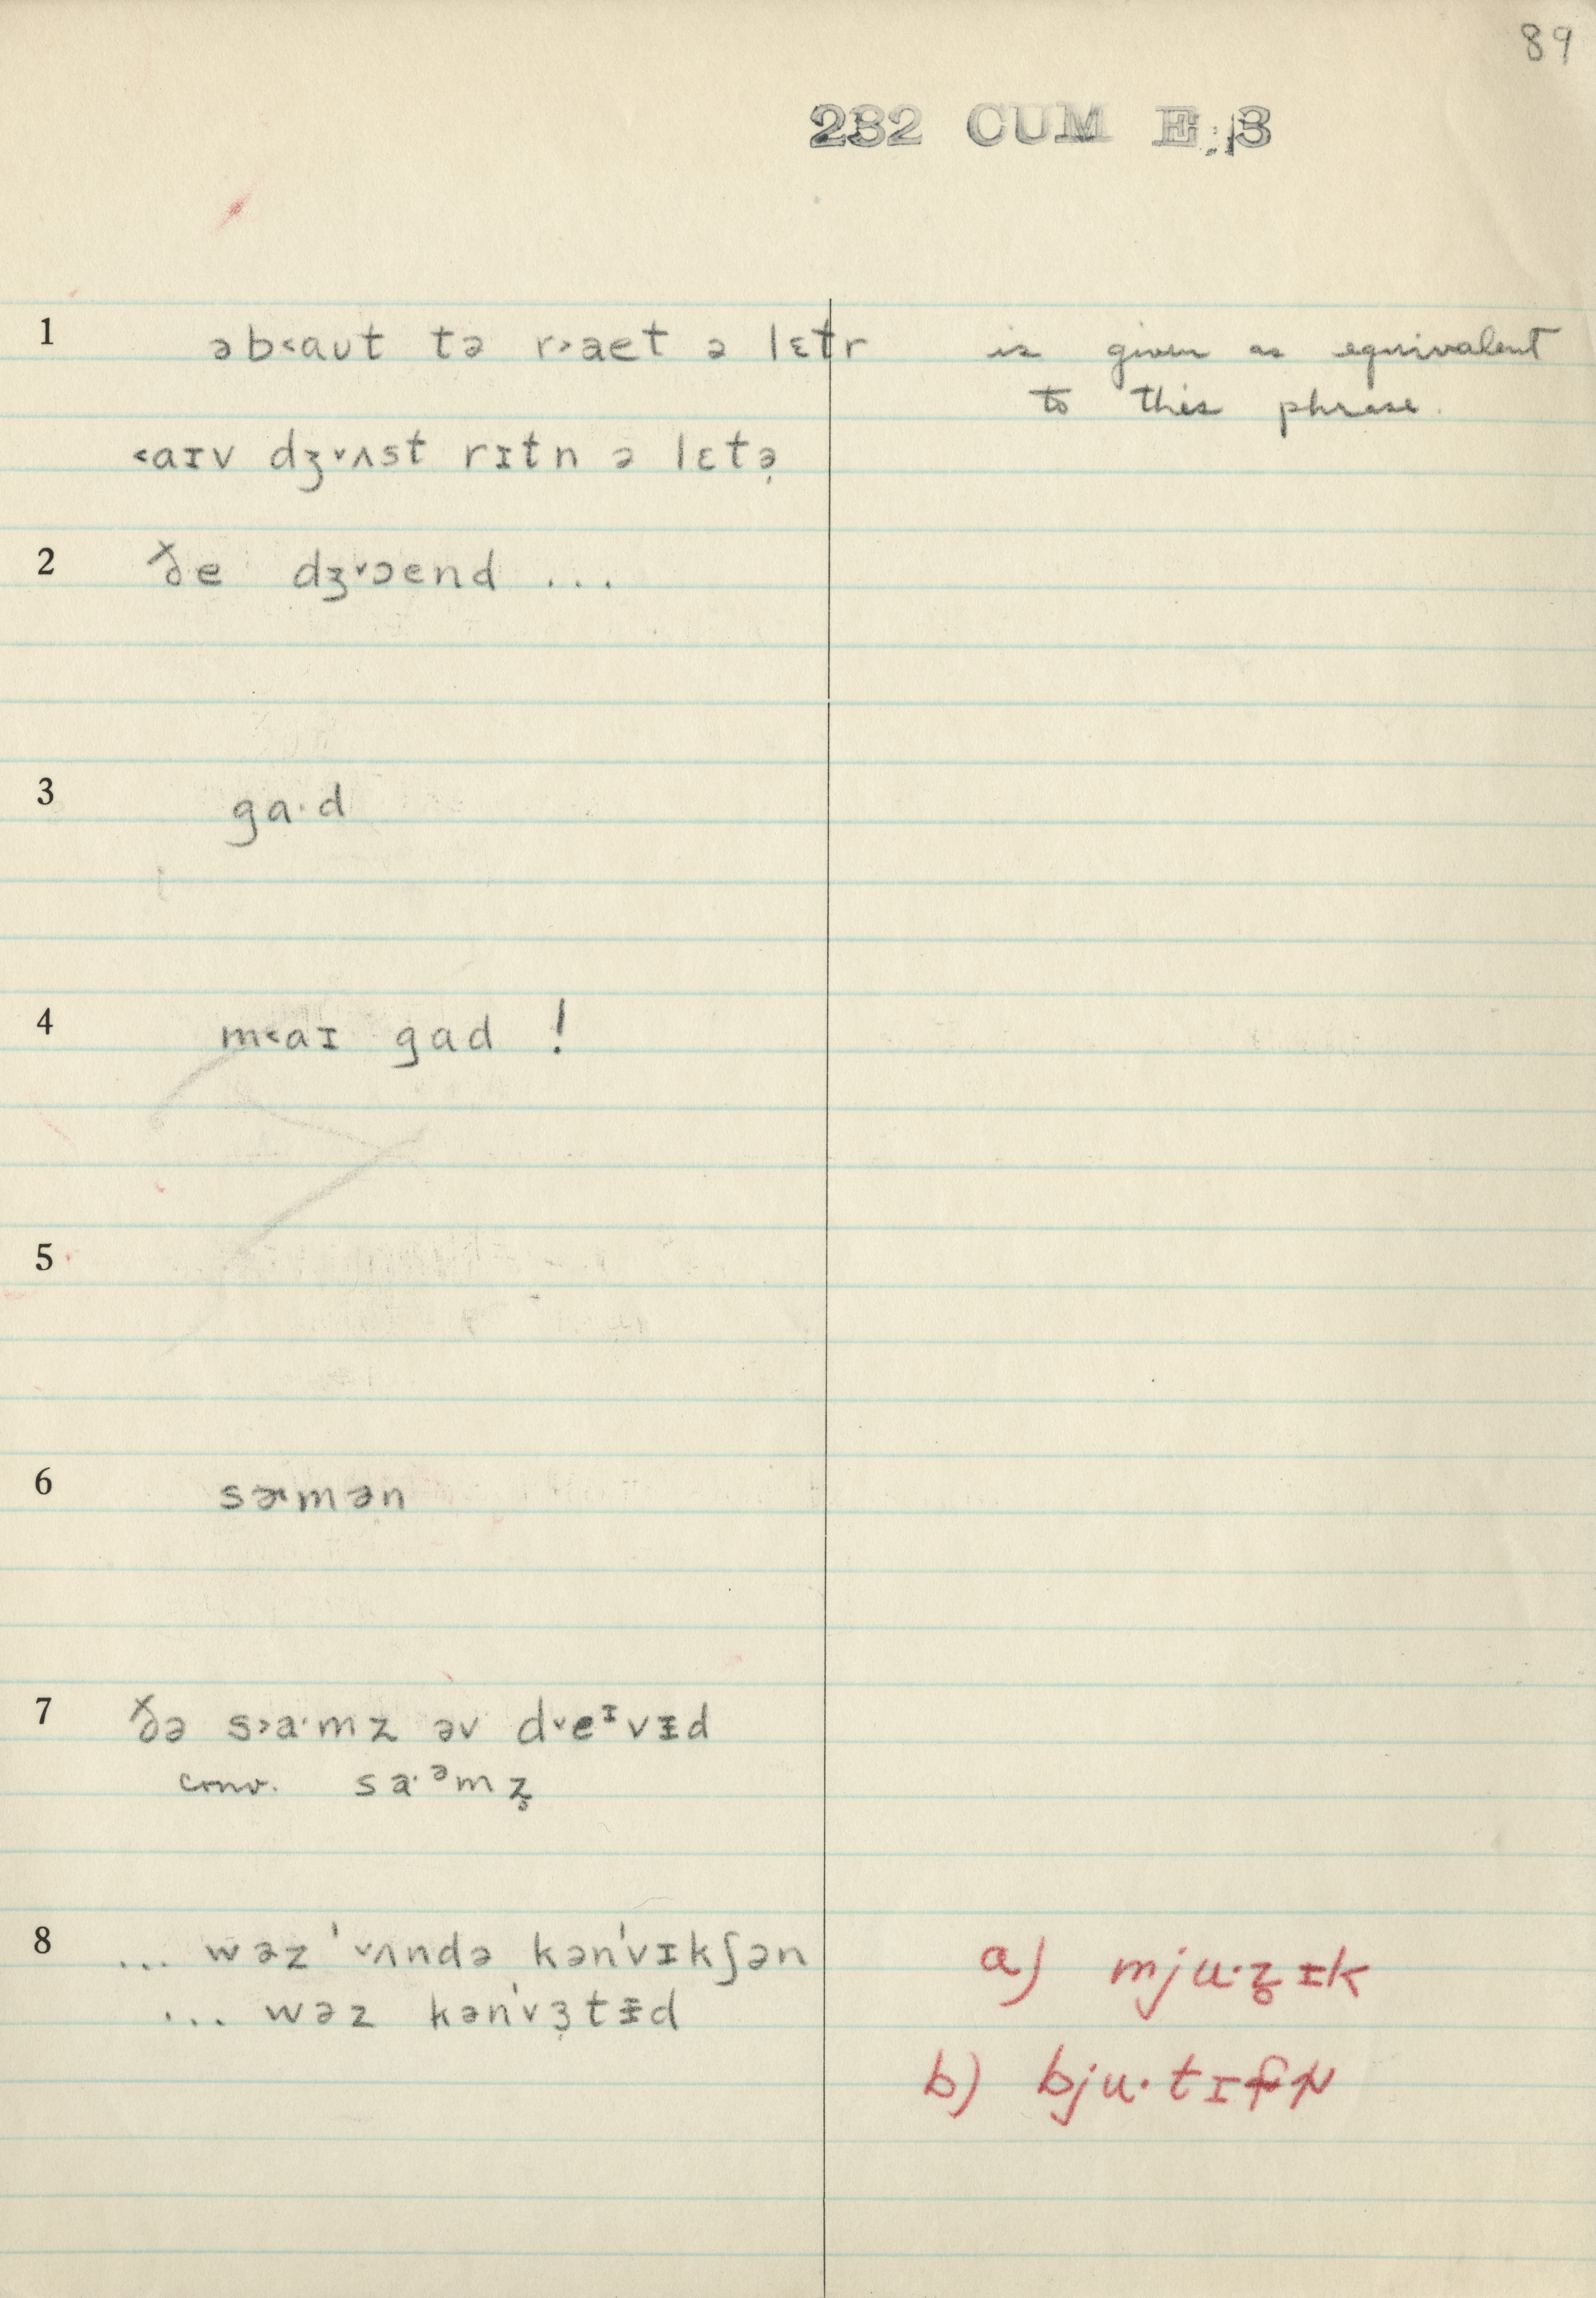 89
232 CUM E 3
1 əb˂aʊt tə r˃aet ə lɛtr is given as equivalent
to this phrase.
˂aɪv dʒ˅ʌst rɪtn ə lɛtə̣
2 ðe dʒ˅ɔend ...
3 ga·d
4 m˂aɪ gad !
5
6 sɚmən
7 ðə s˃a·mz əv d˅eᶦvɪd
conv. sa·ᵊmz̥
8 ... wəz '˅ʌndə kən'vɪkʃən a) mju·z̥ɪk
... wəz kən'vɜ̣tɪd
b) bju·tɪ